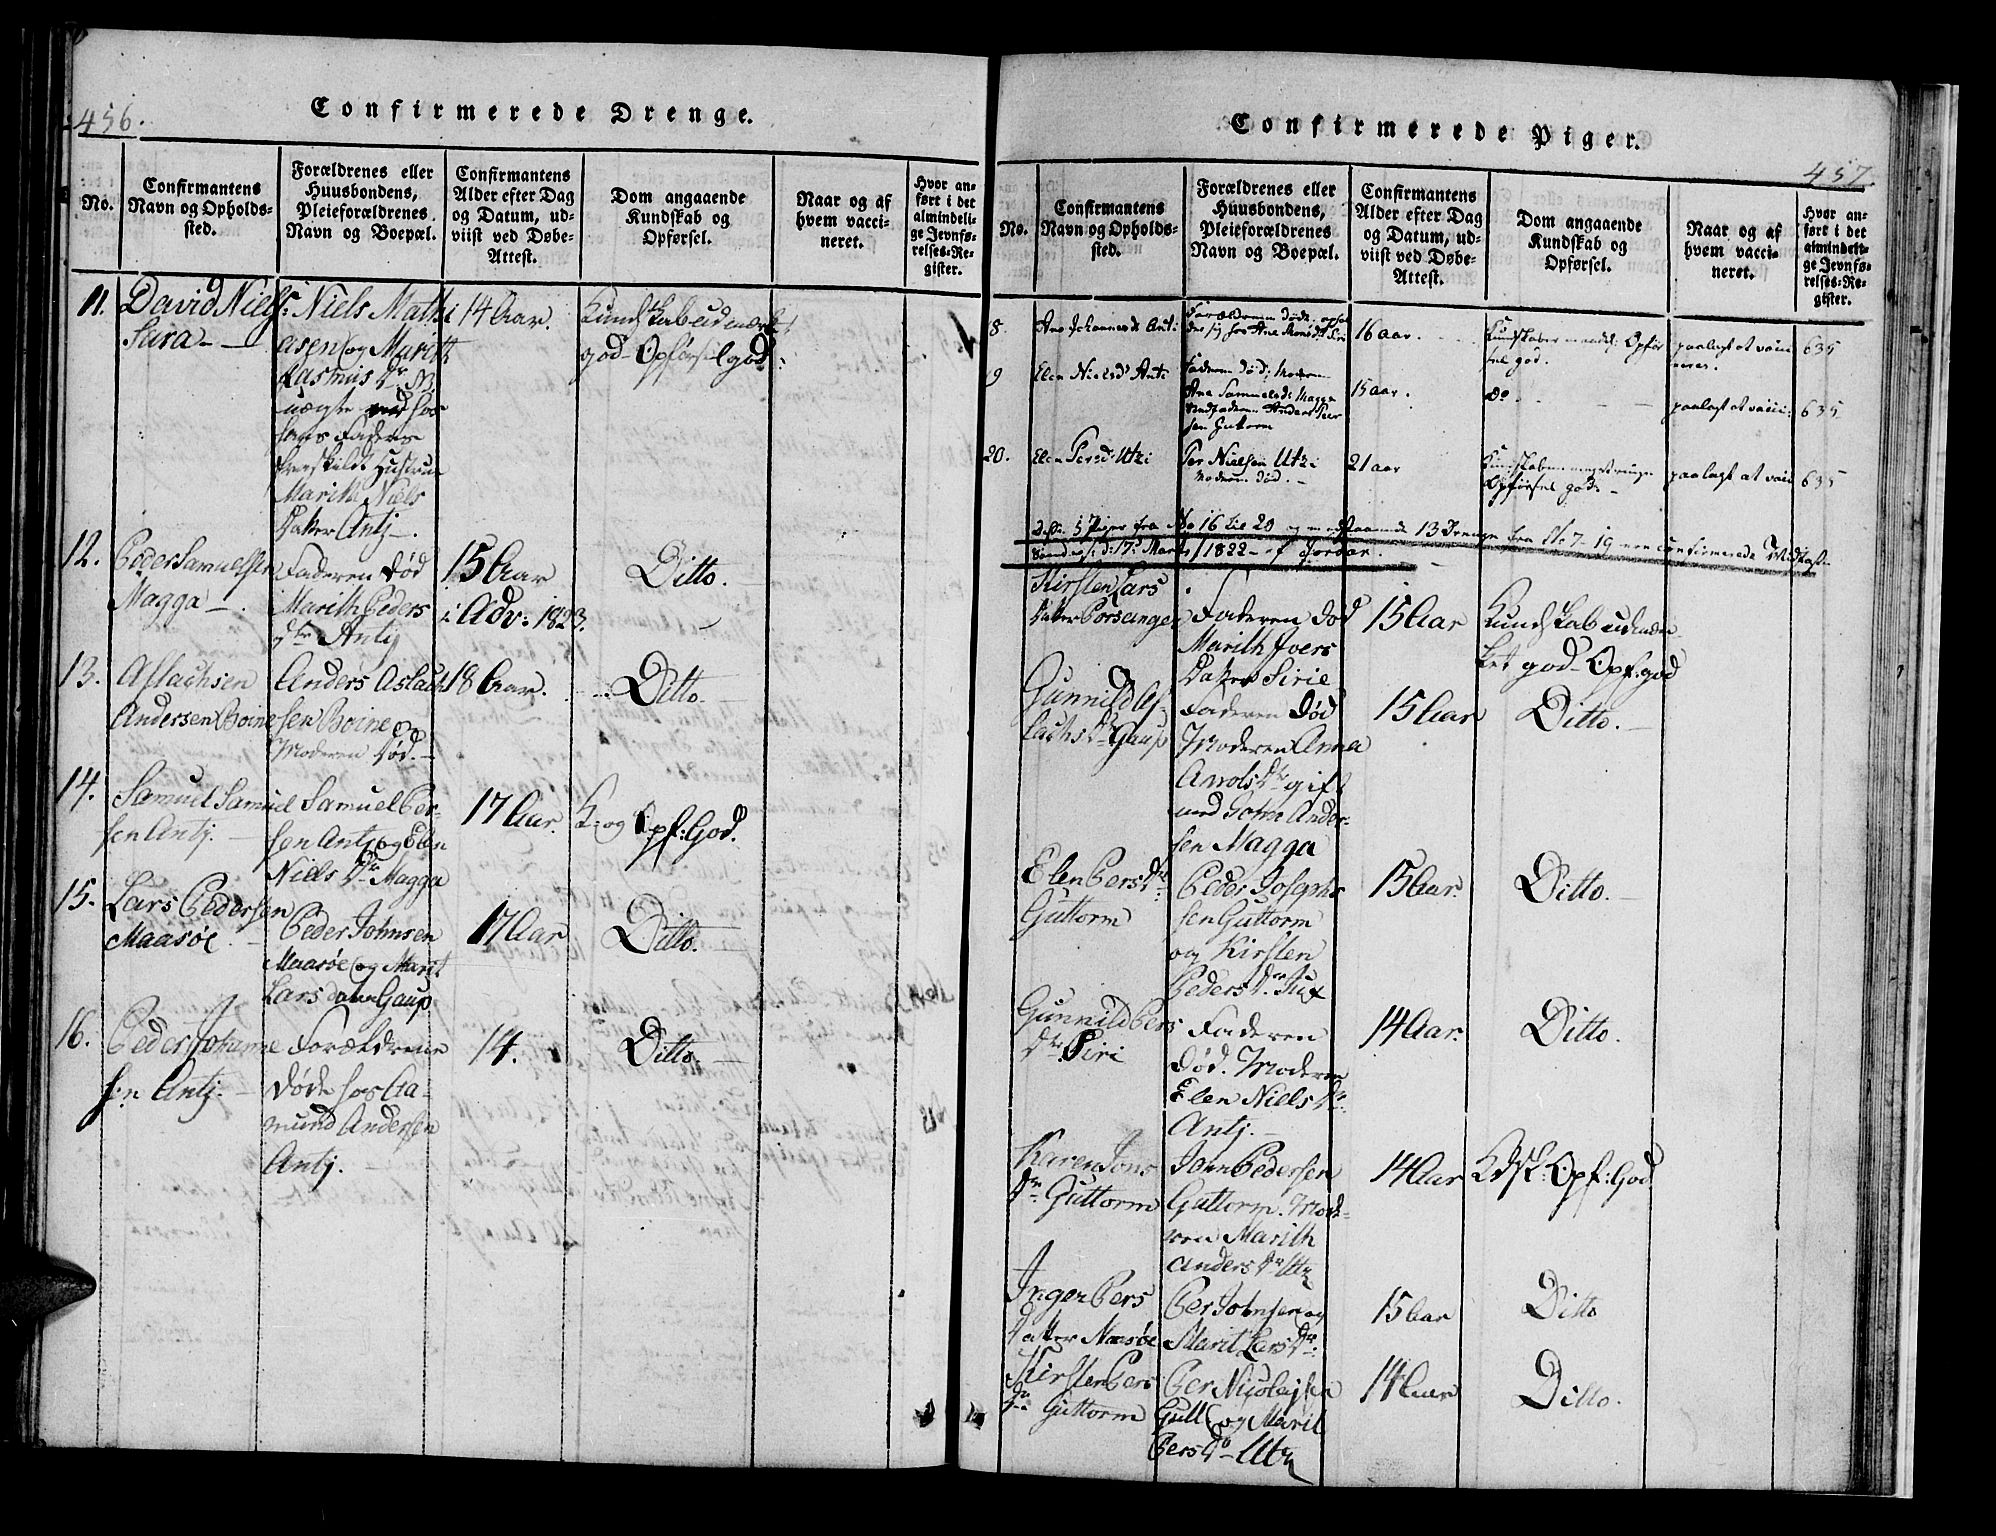 456.
Confirmerede Drenge.
No.
Confirmantens
Navn og Opholds-
sted.
Forældrenes eller
Huusbondens,
Pleieforældrenes
Navn og Boepæl.
Confirmantens
Alder efter Dag
og Datum, ud-
viist ved Døbe-
Attest.
Dom angaaende
Kundskab og
Opførsel.
Naar og af
hvem vacci-
neret.
Hvor an-
ført i det
almindeli-
ge Jevnfø-
relses-Re-
gister.
11. David Niels:
Sara
Niels Mathi
asen og Marith
Rasmus Dr
hans Faders
fraskildt Hustrue
Marith Niels
Datter Antj
14 Aar.
Kundskab udmærket
god Opførsel god
12. Peder Samuelsen
Magga
Faderen død
Marith Peders
Dtr Antj
15 Aar
i Adv: 1823.
Ditto.
13. Aslachsen
Andersen Boine
Anders Aslach
sen Boine og
Moderen død.
18 Aar.
Ditto.
14. Samuel Samuel
sen Antj.
Samuel Per-
sen Antj og Elen
Niels Dr Magga
17 Aar.
K: og Opf: God.
15. Lars Pedersen
Maasøe
Peder Johnsen
Maasøe og Marit
Lars datter Gaup
17 Aar
Ditto.
16. Peder Johanne
sen Antj.
Forældrene
døde hos Aa-
mund Andersen
Antj.
14.
Ditto.
Confirmerede Piger.
457.
No.
Confirmantens
Navn og Opholds-
sted.
Forældrenes eller
Huusbondens,
Pleieforældrenes
Navn og Boepæl.
Confirmantens
Alder efter Dag
og Datum, ud-
viist ved Døbe-
Attest.
Dom angaaende
Kundskab og
Opførsel.
Naar og af
hvem vacci-
neret.
Hvor an-
ført i det
almindeli-
ge Jevnfø-
relses-Re-
gister.
8. Ane Johannesd Anti
Forældrene døde, ophol
der sig hos Ane
16 aar.
Kundskaber maadel: Opfør
sel god.
paalagt at vacci
neres.
635
9 Elen Nielsd: Anti
Faderen død; Moderen
Ane Samuelsd: Magga
Stedfaderen Anders Peer
sen Gutorm
15 aar.
do.
paalagt at vacci:
635
20. Elen Persd: Utzi
Per Nielsen Utzi
Moderen død.
21 aar
Kundskaben meget ringe
Opførsel god.
paalagt at vacci
635
Disse 5 Piger fra No 16 til 20 og 13 Drenge fra No 7-19 ere confirmerede
d: 17d Marts 1822 af
Kirsten Lars
Datter Porsanger
Faderen død
Marith Ivers
Datter Sirie
15 Aar
Kundskab udmær
ket god Opf: god
Gunnild As-
lachs Dr Gaup
Faderen død
Moderen Anna
Arrols Dr gift
med Andersen
Magga
15 Aar
Ditto.
Elen Pers Dr:
Guttorm
Peder Josephs
sen Guttorm
og Kirsten
Peders Dr. Jux
15 Aar
Ditto.
Gunnild Pers
Dr Siri
Faderen
død. Moderen
Elen Niels Dr:
Antj.
14 Aar.
Ditto.
Karen Jons
Dr Guttorm
John Pedersen
Guttorm. Mode-
ren Marith
Anders Dr Utz
14 Aar
Kdsk: Opf: God
Inger Pers
Datter Maasøe
Per Johnsen og
Marit Lars Dr:
15 Aar
Ditto
Kirsten Pers
Dr Guttorm
Per Nicolajsen
Gutt og Marit
Pers Dr Utz
14 Aar
Ditto.